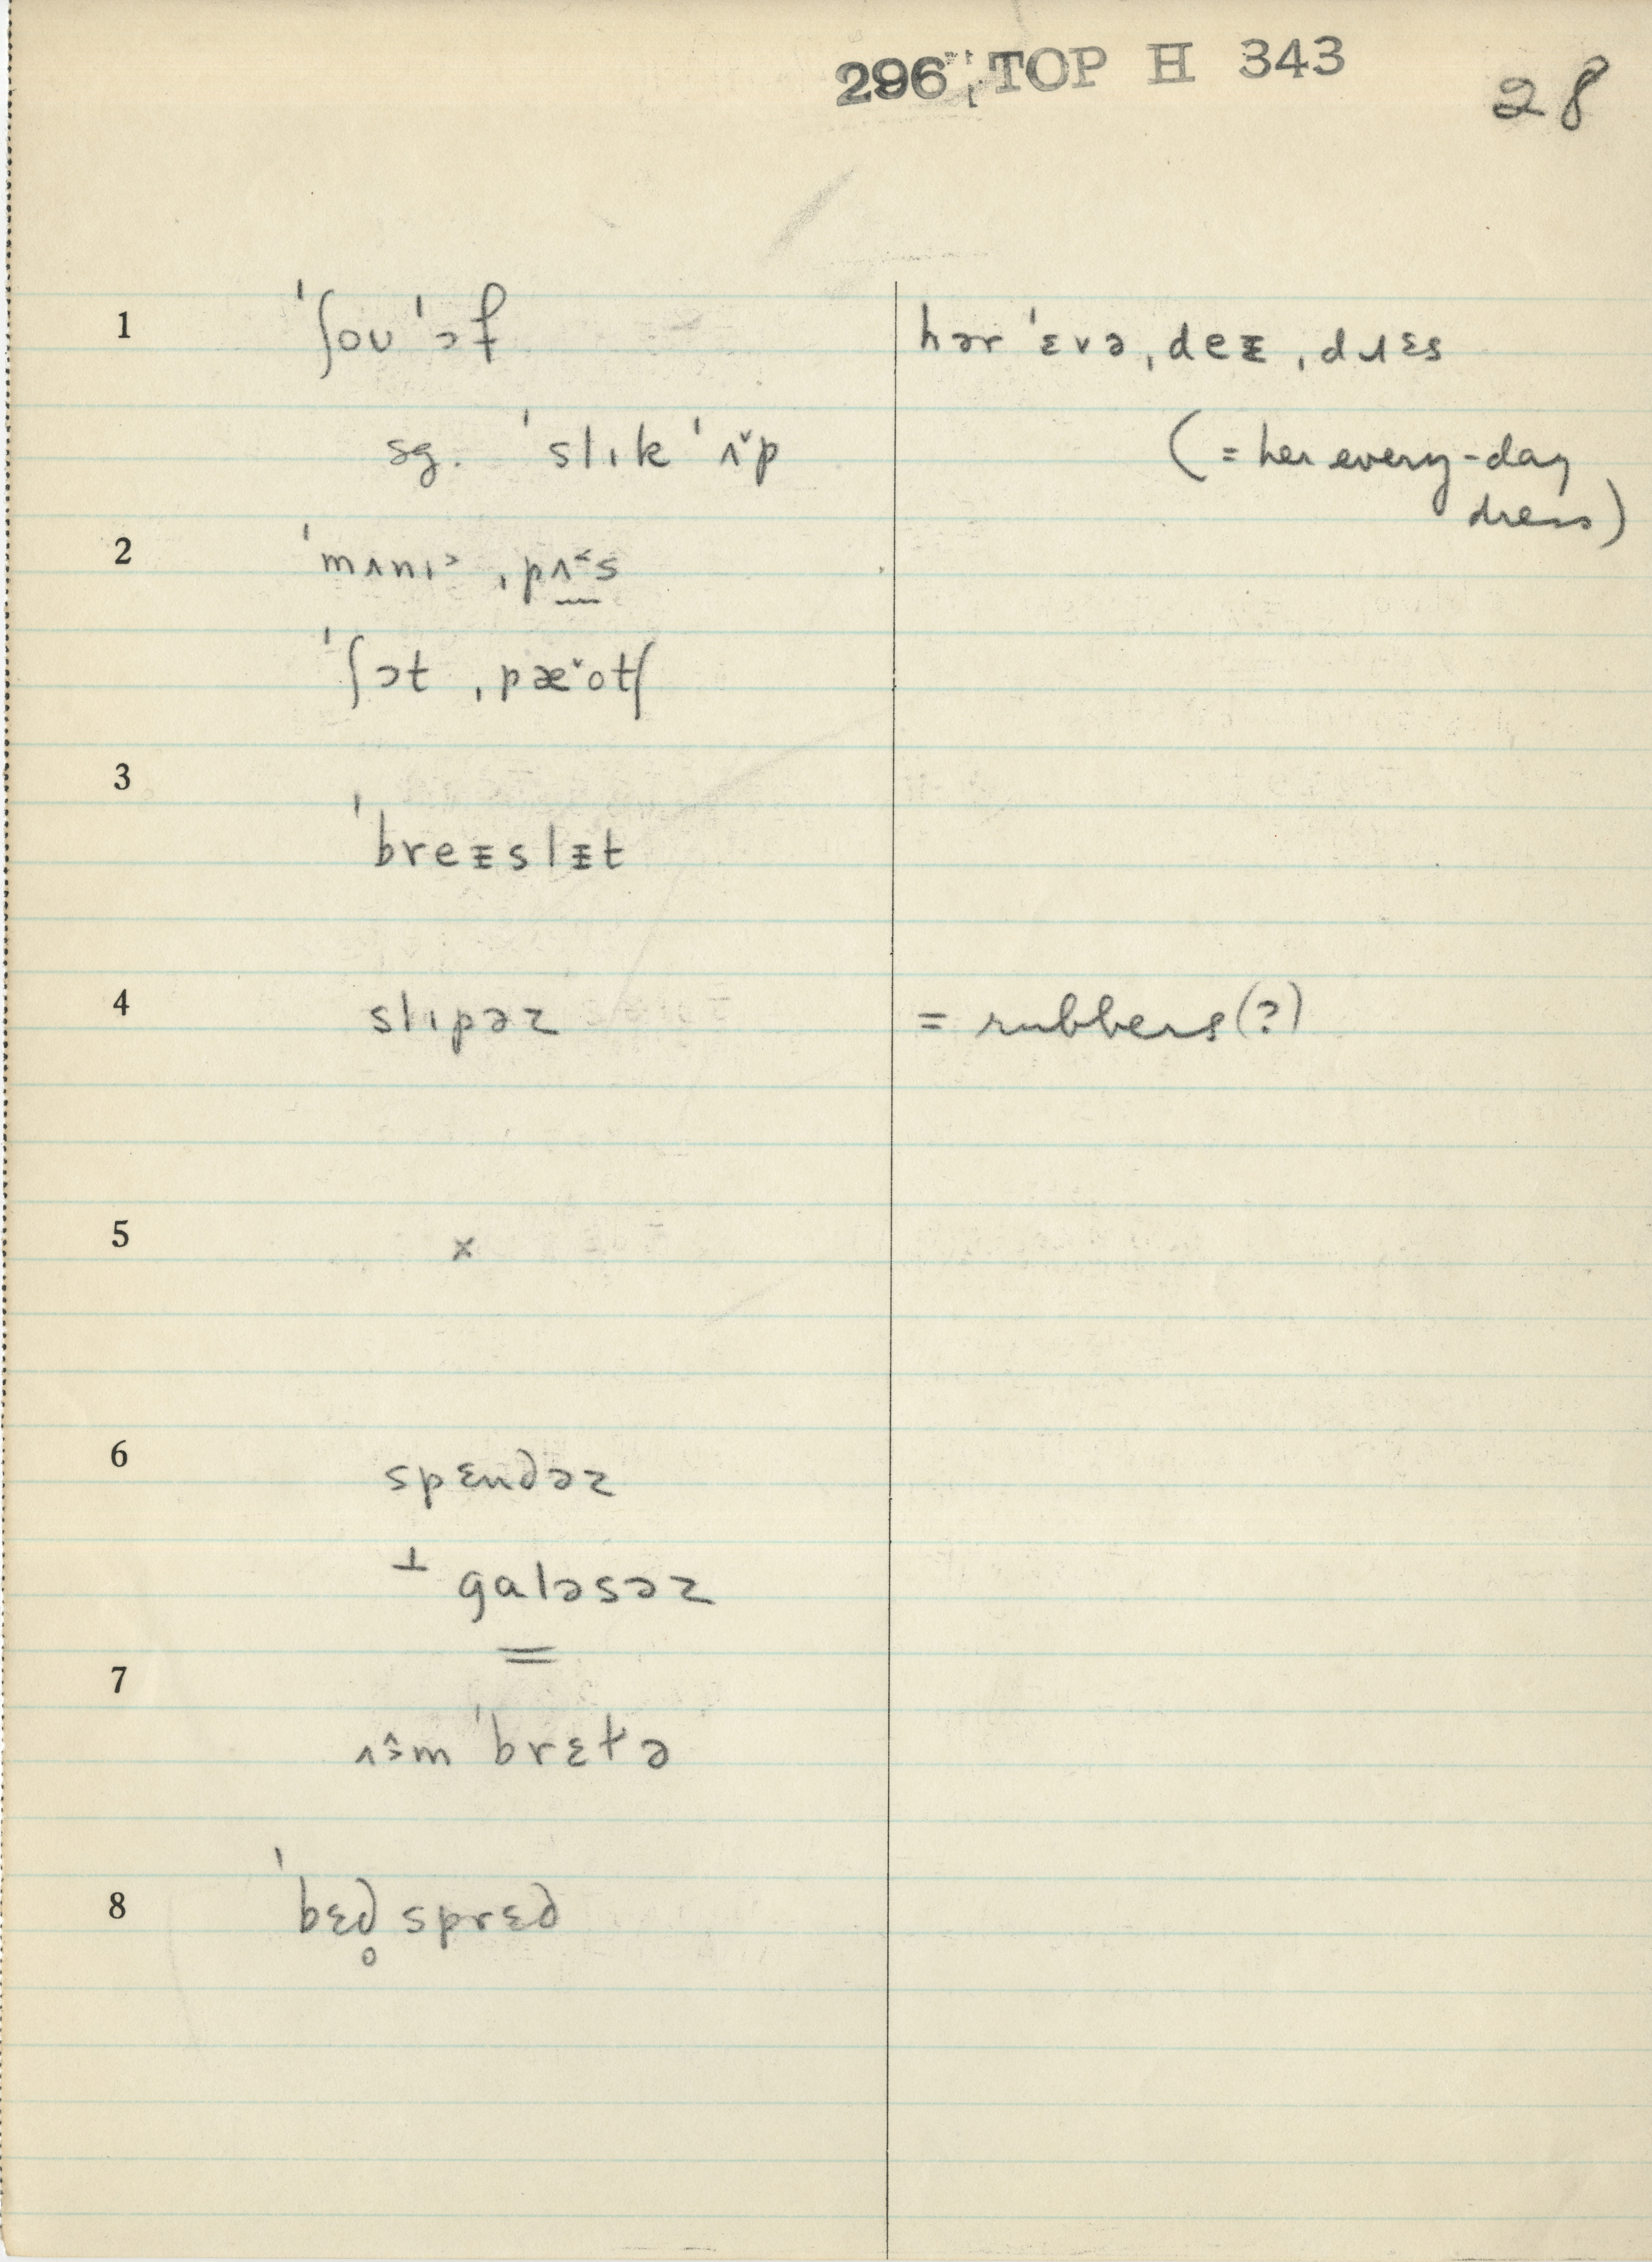 296 TOP H 343
28
1 ˈʃoʊˈɔf
hər ˈɛvə ˌdeᵻ ˌdɹɛs
sg. ˈslɪkˈʌ˅p
(= her every-day
dress)
2 ˈmʌnɪ˃ ˌpʌ˂s
ˈʃɔt ˌpæ˅otʃ
3
ˈbreᵻslᵻt
4 slɪpəz
= rubbers (?)
5 ×
6 spɛndəz
⊥ galəsəz
=
7
ʌ̂˃mˈbrɛtə
8 ˈbɛd̥sprɛd